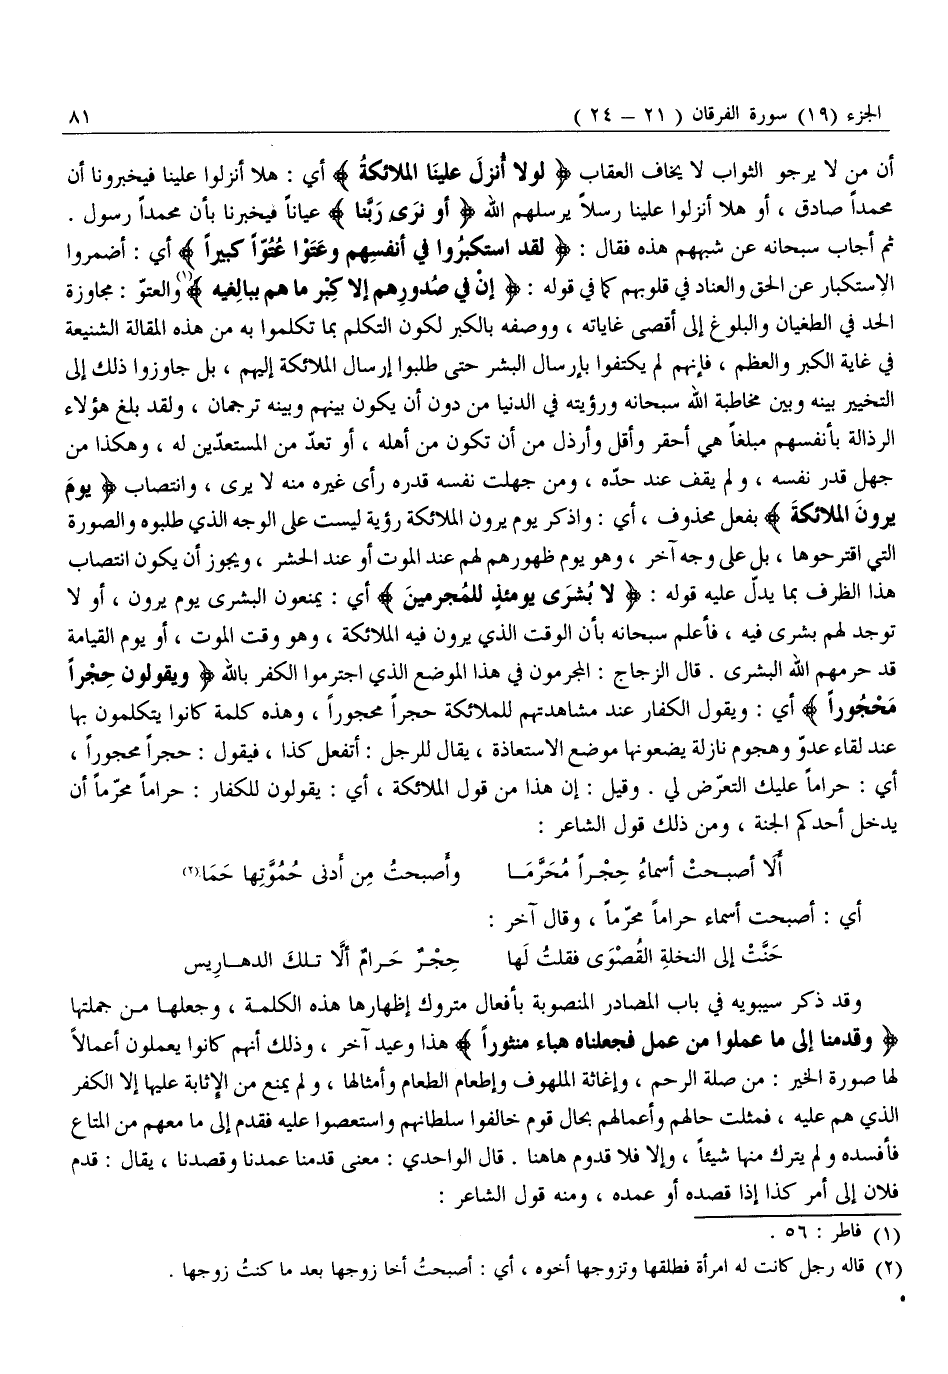 الجزء (١٩) سورة الفرقان ( ٢١ – ٢٤ ) ٨١
أن من لا يرجو الثواب لا يخاف العقاب ﴿ لولا أُنزلَ علينَا الملائكةُ ﴾ أي : هلا أنزلوا علينا فيخبرونا أن
محمداً صادق ، أو هلا أنزلوا علينا رسلاً يرسلهم الله ﴿ أو نرَى رَبَّنا ﴾ عياناً فيخبرنا بأن محمداً رسول .
ثم أجاب سبحانه عن شبههم هذه فقال : ﴿ لقد استكبرُوا في أنفسِهم وعَتَوْا عُتُوّاً كبيراً ﴾ أي : أضمروا
الاستكبار عن الحق والعناد في قلوبهم كما في قوله : ﴿ إنْ في صُدورِهم إلا كِبْر ما هم ببالغيه ﴾(١) والعتوّ : مجاوزة
الحد في الطغيان والبلوغ إلى أقصى غاياته ، ووصفه بالكبر لكون التكلم بما تكلموا به من هذه المقالة الشنيعة
في غاية الكبر والعظم ، فإنهم لم يكتفوا بإرسال البشر حتى طلبوا إرسال الملائكة إليهم ، بل جاوزوا ذلك إلى
التخيير بينه وبين مخاطبة الله سبحانه ورؤيته في الدنيا من دون أن يكون بينهم وبينه ترجمان ، ولقد بلغ هؤلاء
الرذالة بأنفسهم مبلغاً هي أحقر وأقل وأرذل من أن تكون من أهله ، أو تعدّ من المستعدّين له ، وهكذا من
جهل قدر نفسه ، ولم يقف عند حدّه ، ومن جهلت نفسه قدره رأى غيره منه لا يرى ، وانتصاب ﴿ يومَ
يرونَ الملائكةَ ﴾ بفعل محذوف ، أي : واذكر يوم يرون الملائكة رؤية ليست على الوجه الذي طلبوه والصورة
التي اقترحوها ، بل على وجه آخر ، وهو يوم ظهورهم لهم عند الموت أو عند الحشر ، ويجوز أن يكون انتصاب
هذا الظرف بما يدلّ عليه قوله : ﴿ لا بُشرَى يومئذٍ للمُجرمينَ ﴾ أي : يمنعون البشرى يوم يرون ، أو لا
توجد لهم بشرى فيه ، فأعلم سبحانه بأن الوقت الذي يرون فيه الملائكة ، وهو وقت الموت ، أو يوم القيامة
قد حرمهم الله البشرى . قال الزجاج : المجرمون في هذا الموضع الذي اجترموا الكفر بالله ﴿ ويقولون حِجْراً
مَحْجُوراً ﴾ أي : ويقول الكفار عند مشاهدتهم للملائكة حجراً محجوراً ، وهذه كلمة كانوا يتكلمون بها
عند لقاء عدوّ وهجوم نازلة يضعونها موضع الاستعاذة ، يقال للرجل : أتفعل كذا ، فيقول : حجراً محجوراً ،
أي : حراماً عليك التعرّض لي . وقيل : إن هذا من قول الملائكة ، أي : يقولون للكفار : حراماً محرّماً أن
يدخل أحدكم الجنة ، ومن ذلك قول الشاعر :
أَلَا أصبحتْ أسماءُ حِجْراً مُحَرَّمَا وأصبحتُ مِن أَدنى حُمُوَّتِها حَمَا(٢)
أي : أصبحت أسماء حراماً محرّماً ، وقال آخر :
حَنَّتْ إلى النخلةِ القُصْوَى فقلتُ لَها حِجْرٌ حَرامٌ ألَّا تلكَ الدهاريس
وقد ذكر سيبويه في باب المصادر المنصوبة بأفعال متروك إظهارها هذه الكلمة ، وجعلها من جملتها
﴿ وقدمنا إلى ما عملوا من عمل فجعلناه هباء منثوراً ﴾ هذا وعيد آخر ، وذلك أنهم كانوا يعملون أعمالاً
لها صورة الخير : من صلة الرحم ، وإغاثة الملهوف وإطعام الطعام وأمثالها ، ولم يمنع من الإثابة عليها إلا الكفر
الذي هم عليه ، فمثلت حالهم وأعمالهم بحال قوم خالفوا سلطانهم واستعصوا عليه فقدم إلى ما معهم من المتاع
فأفسده ولم يترك منها شيئاً ، وإلا فلا قدوم هاهنا . قال الواحدي : معنى قدمنا عمدنا وقصدنا ، يقال : قدم
فلان إلى أمر كذا إذا قصده أو عمده ، ومنه قول الشاعر :
(١) فاطر : ٥٦ .
(٢) قاله رجل كانت له امرأة فطلقها وتزوجها أخوه ، أي : أصبحتُ أخا زوجها بعد ما كنتُ زوجها .